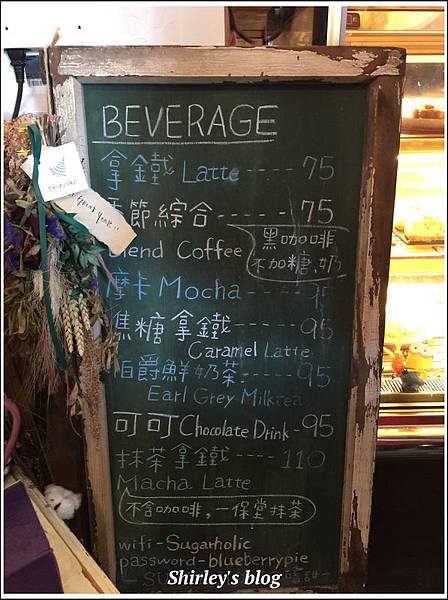 BEVERAGE
拿鐵 Latte ----- 75
節綜合 ------ 75
Blend Coffee
黑咖啡
不加糖、奶
摩卡 Mocha ---- 95
焦糖拿鐵 ---- 95
Caramel Latte
伯爵鮮奶茶 ---- 95
Earl Grey Milktea
可可 Chocolate Drink - 95
抹茶拿鐵 ---- 110
Macha Latte
不含咖啡，一保堂抹茶
wifi - Sugarholic
password - blueberrypie
Shirley's blog